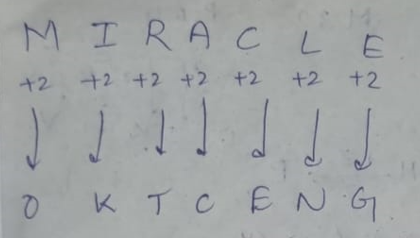 M I R A C L E
+2 +2 +2 +2 +2 +2 +2
O K T C E N G